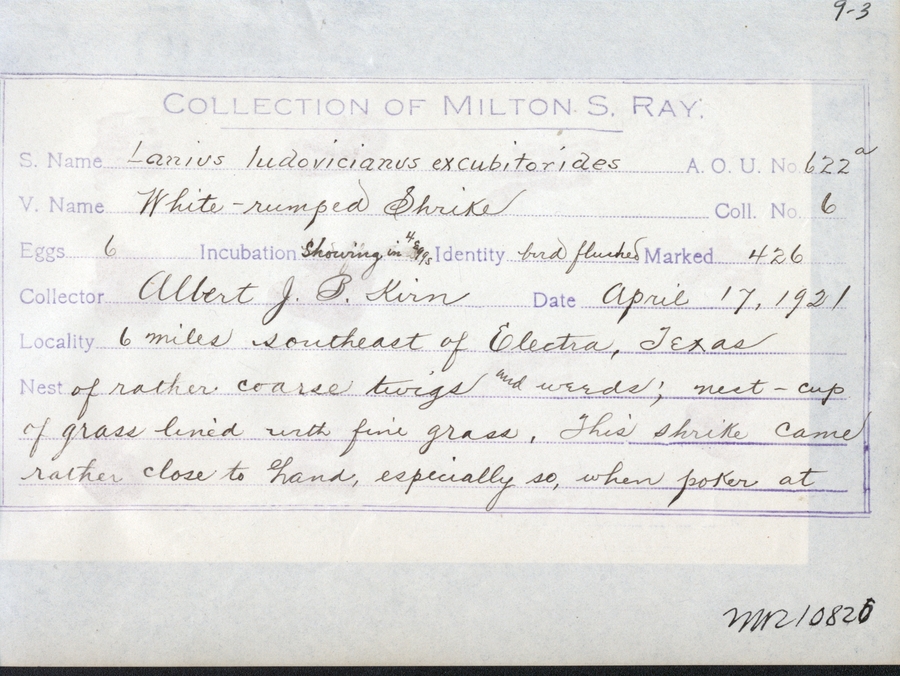 9-3
COLLECTION OF MILTON S. RAY.
S. Name Lanius ludovicianus excubitorides A. O. U. No. 622a
V. Name White-rumped Shrike Coll. No. 6
Eggs 6 Incubation Showing in 4 eggs Identity bird flushed Marked 426
Collector Albert J. B. Kirn Date April 17, 1921
Locality 6 miles southeast of Electra, Texas
Nest of rather coarse twigs and weeds; nest-cup
of grass lined with fine grass. This shrike came
rather close to hand, especially so, when poker at